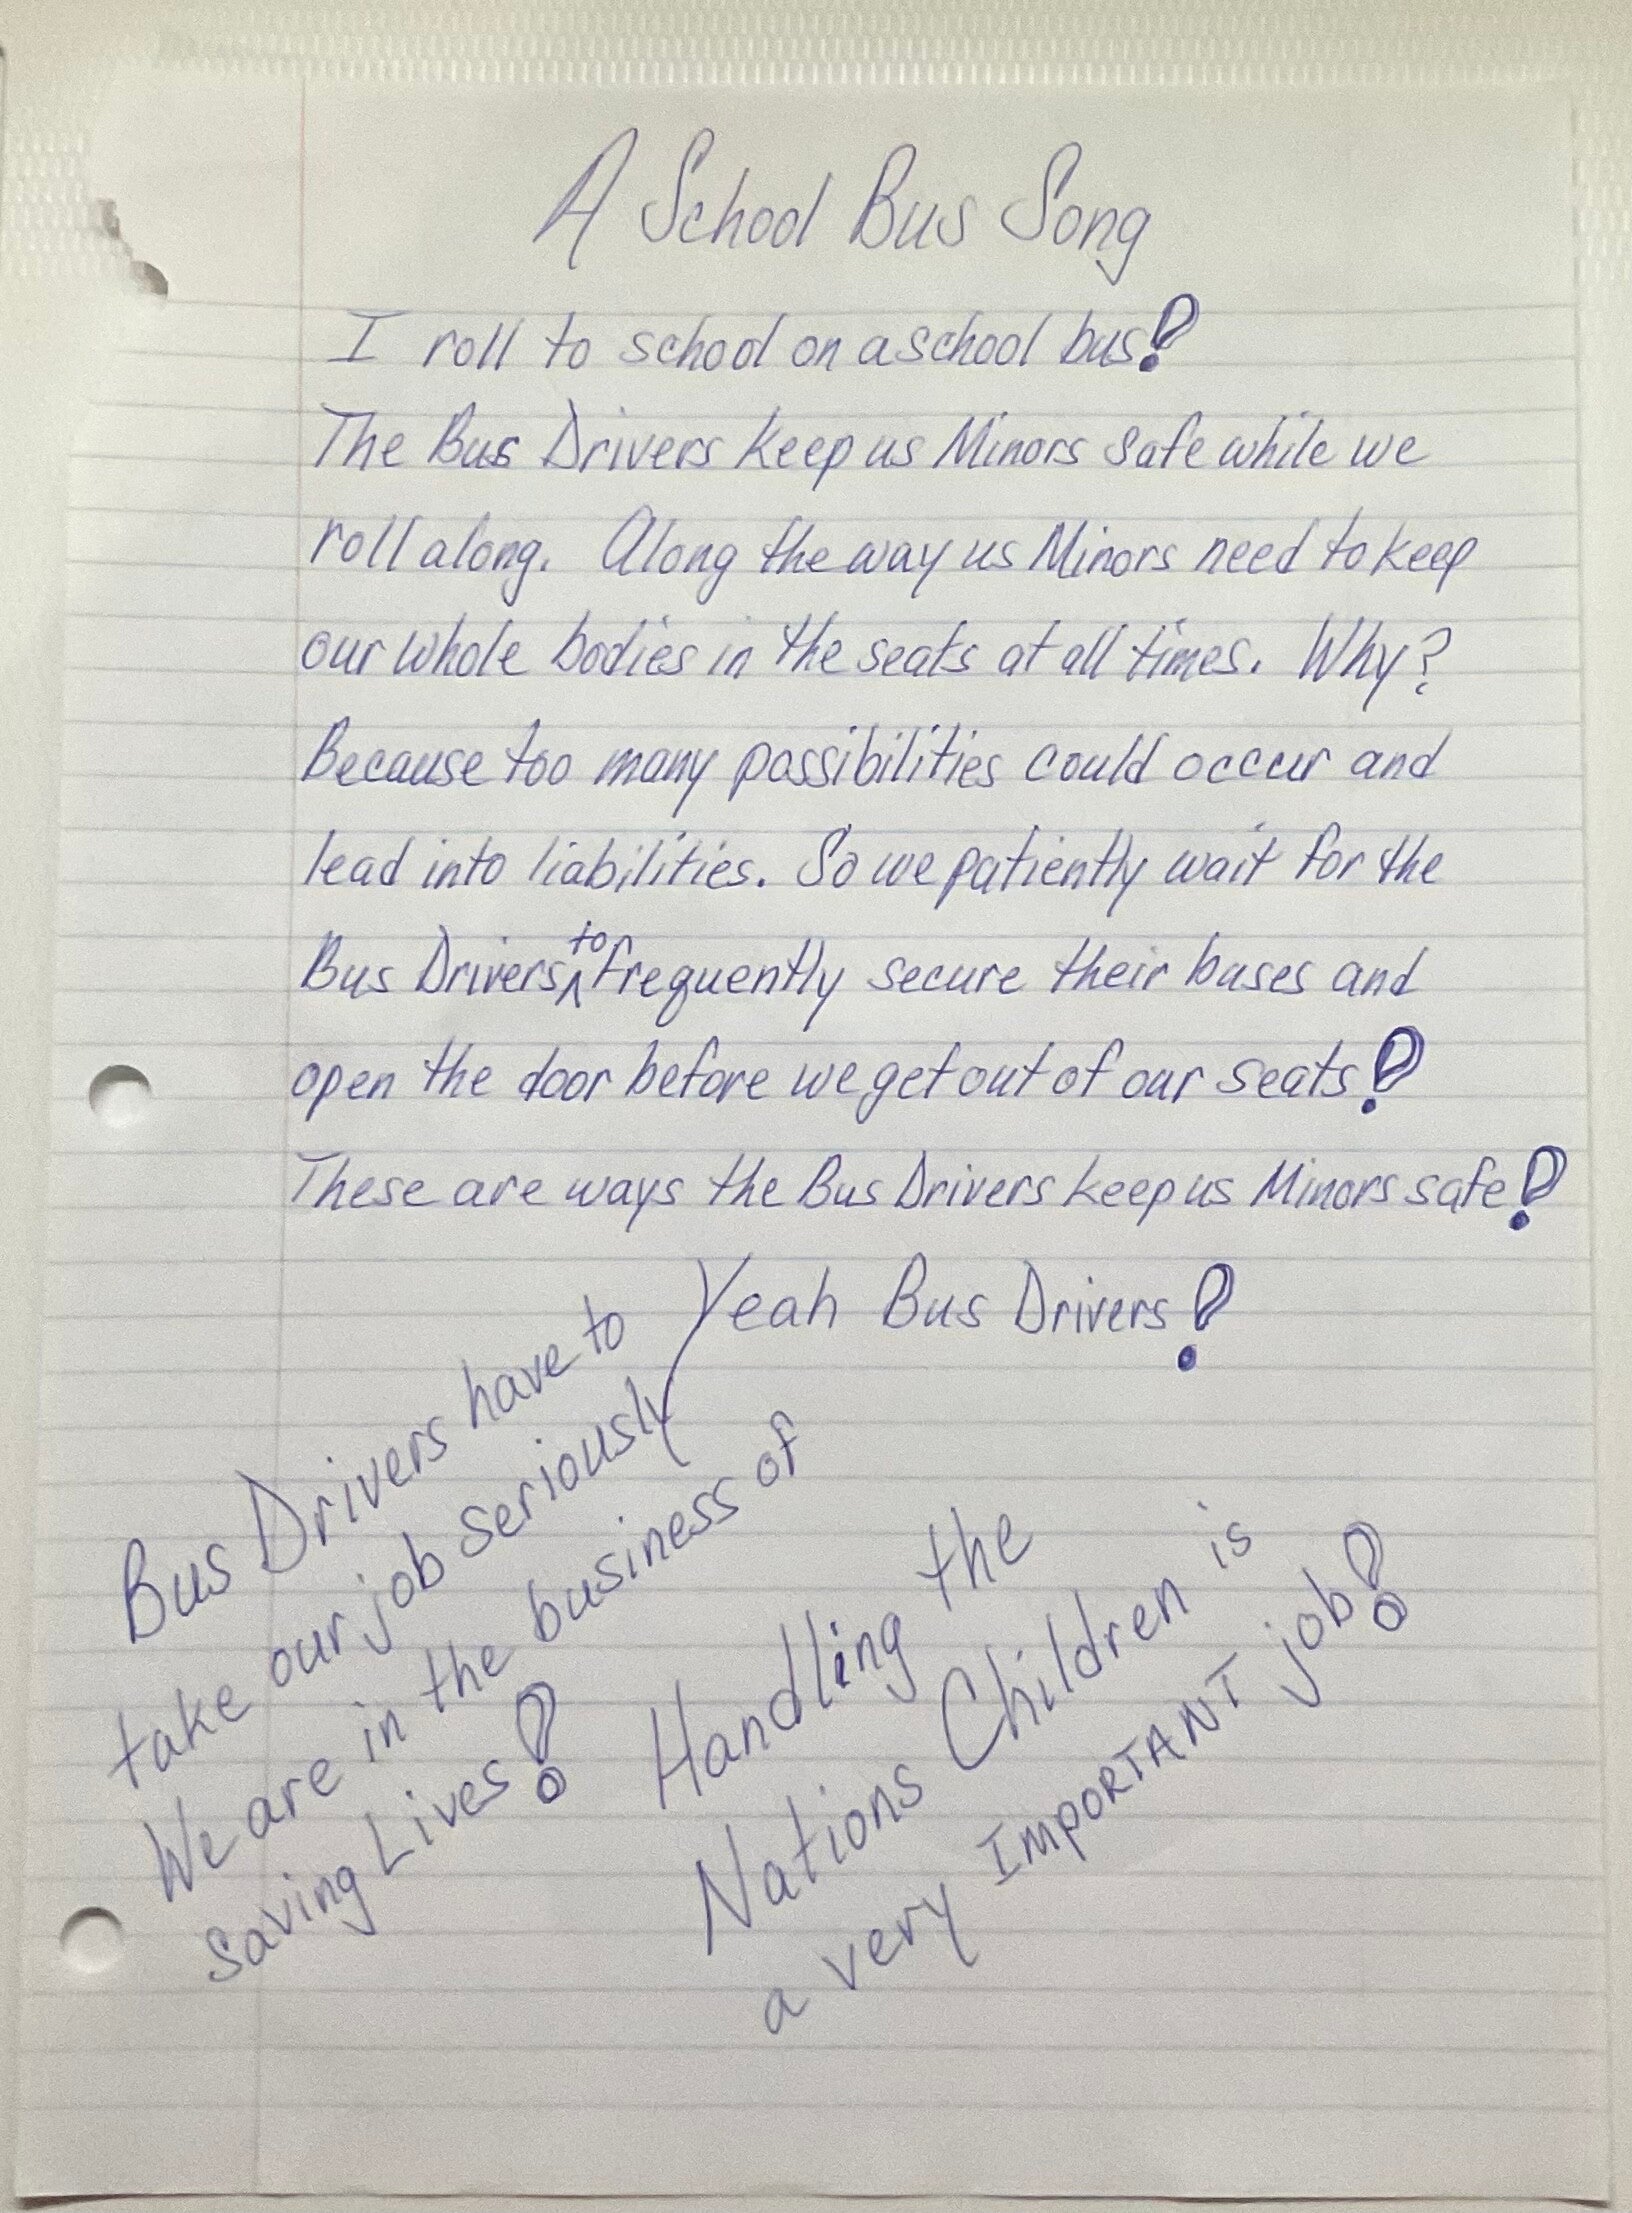 A School Bus Song
I roll to school on a school bus!
The Bus Drivers keep us Minors safe while we
roll along. Along the way us Minors need to keep
our whole bodies in the seats at all times. Why?
Because too many possibilities could occur and
lead into liabilities. So we patiently wait for the
Bus Drivers to frequently secure their buses and
open the door before we get out of our seats!
These are ways the Bus Drivers keep us Minors safe!
Yeah Bus Drivers!
Bus Drivers have to
take our job seriously
We are in the business of
saving Lives!
Handling the
Nations Children is
a very IMPORTANT job!